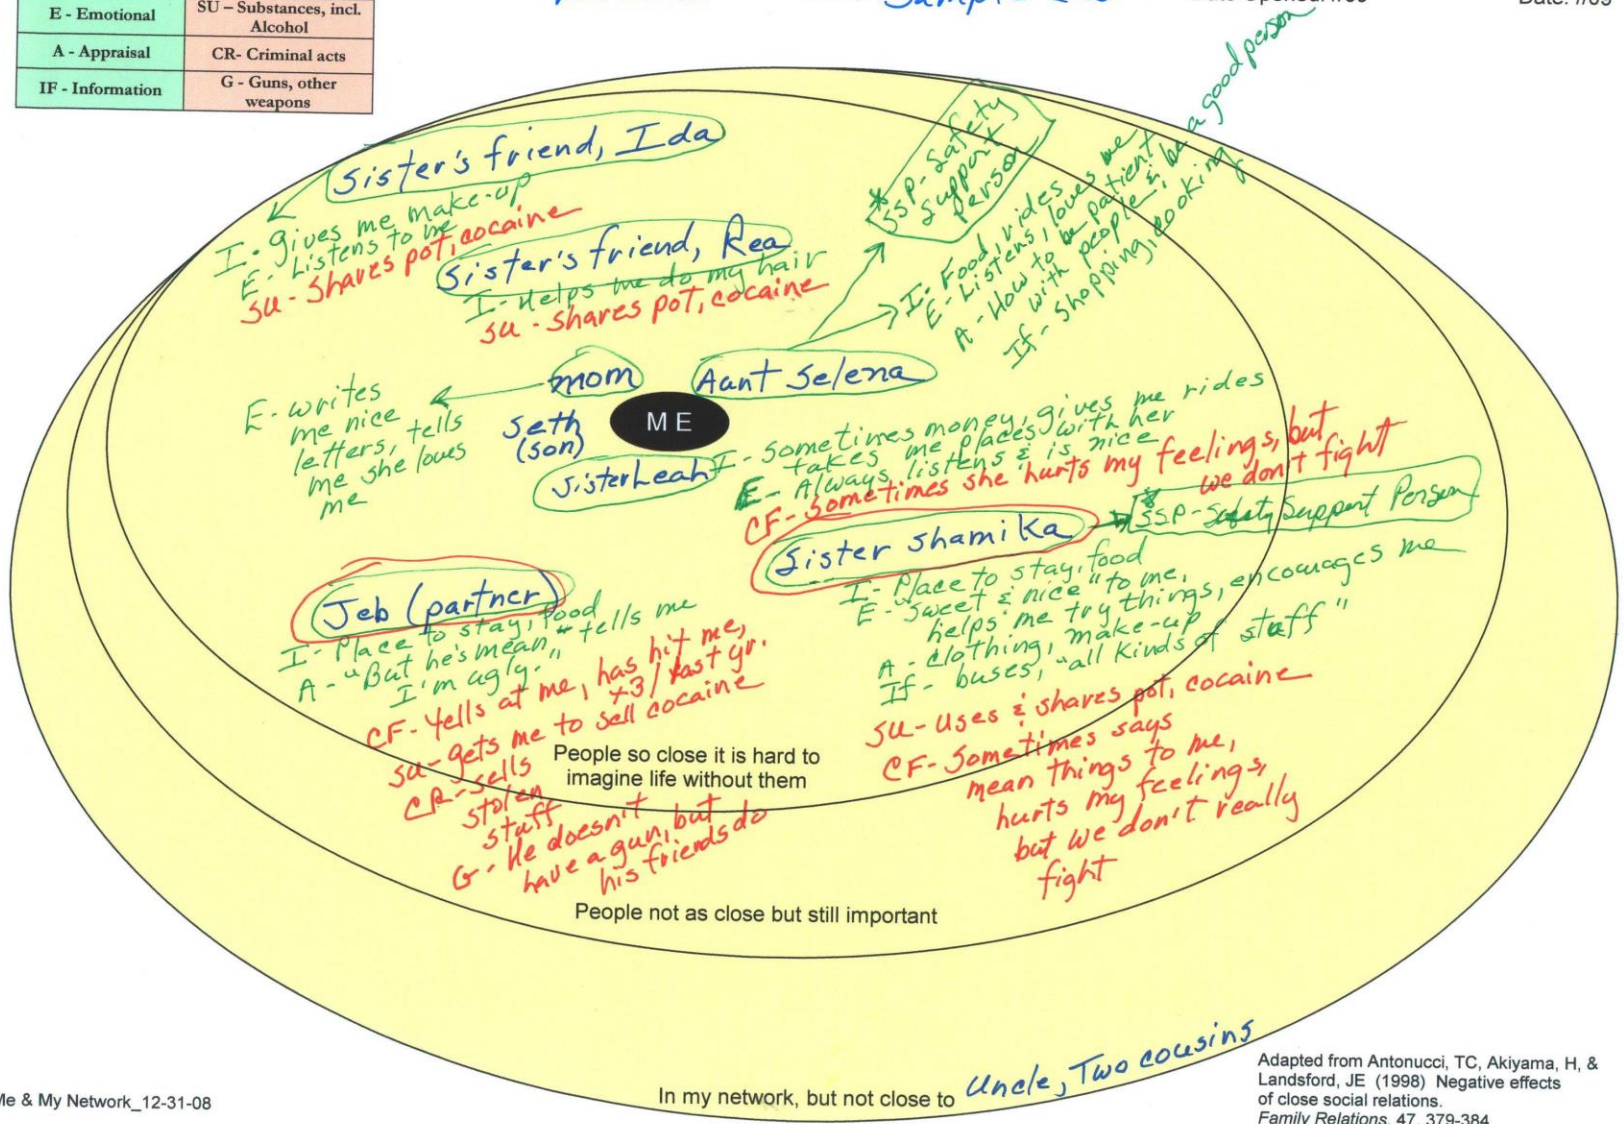 E - Emotional
SU – Substances, incl.
Alcohol
A - Appraisal
CR- Criminal acts
IF - Information
G - Guns, other
weapons
Date: /09
Sister's friend, Ida
I - Gives me make-up
E - Listens to me
SU - Shares pot, cocaine
Sister's friend, Rea
I - Helps me do my hair
SU - Shares pot, cocaine
* SSP - Safety
Support
Person
I - Food, rides
E - Listens, loves me
A - How to be patient
with people & be a good person
If - shopping, cooking
mom
E - writes
me nice
letters, tells
me she loves
me
Aunt Selena
ME
Seth
(son)
Sister Leah
I - Sometimes money, gives me rides
takes me places with her
E - Always listens & is nice
CF - Sometimes she hurts my feelings, but
we don't fight
Sister Shamika
* SSP - Safety Support Person
I - Place to stay, food
E - "Sweet & nice" to me,
helps me try things, encourages me
A - Clothing, make-up
If - buses, "all kinds of stuff"
SU - Uses & shares pot, cocaine
CF - Sometimes says
mean things to me,
hurts my feelings,
but we don't really
fight
Jeb (partner)
I - Place to stay, food
A - "But he's mean," tells me
I'm ugly."
CF - Yells at me, has hit me,
x3/last yr.
SU - gets me to sell cocaine
CR - sells
stolen
stuff
G - He doesn't
have a gun, but
his friends do
People so close it is hard to
imagine life without them
People not as close but still important
In my network, but not close to Uncle, Two cousins
Me & My Network_12-31-08
Adapted from Antonucci, TC, Akiyama, H, &
Landsford, JE (1998) Negative effects
of close social relations.
Family Relations, 47, 379-384